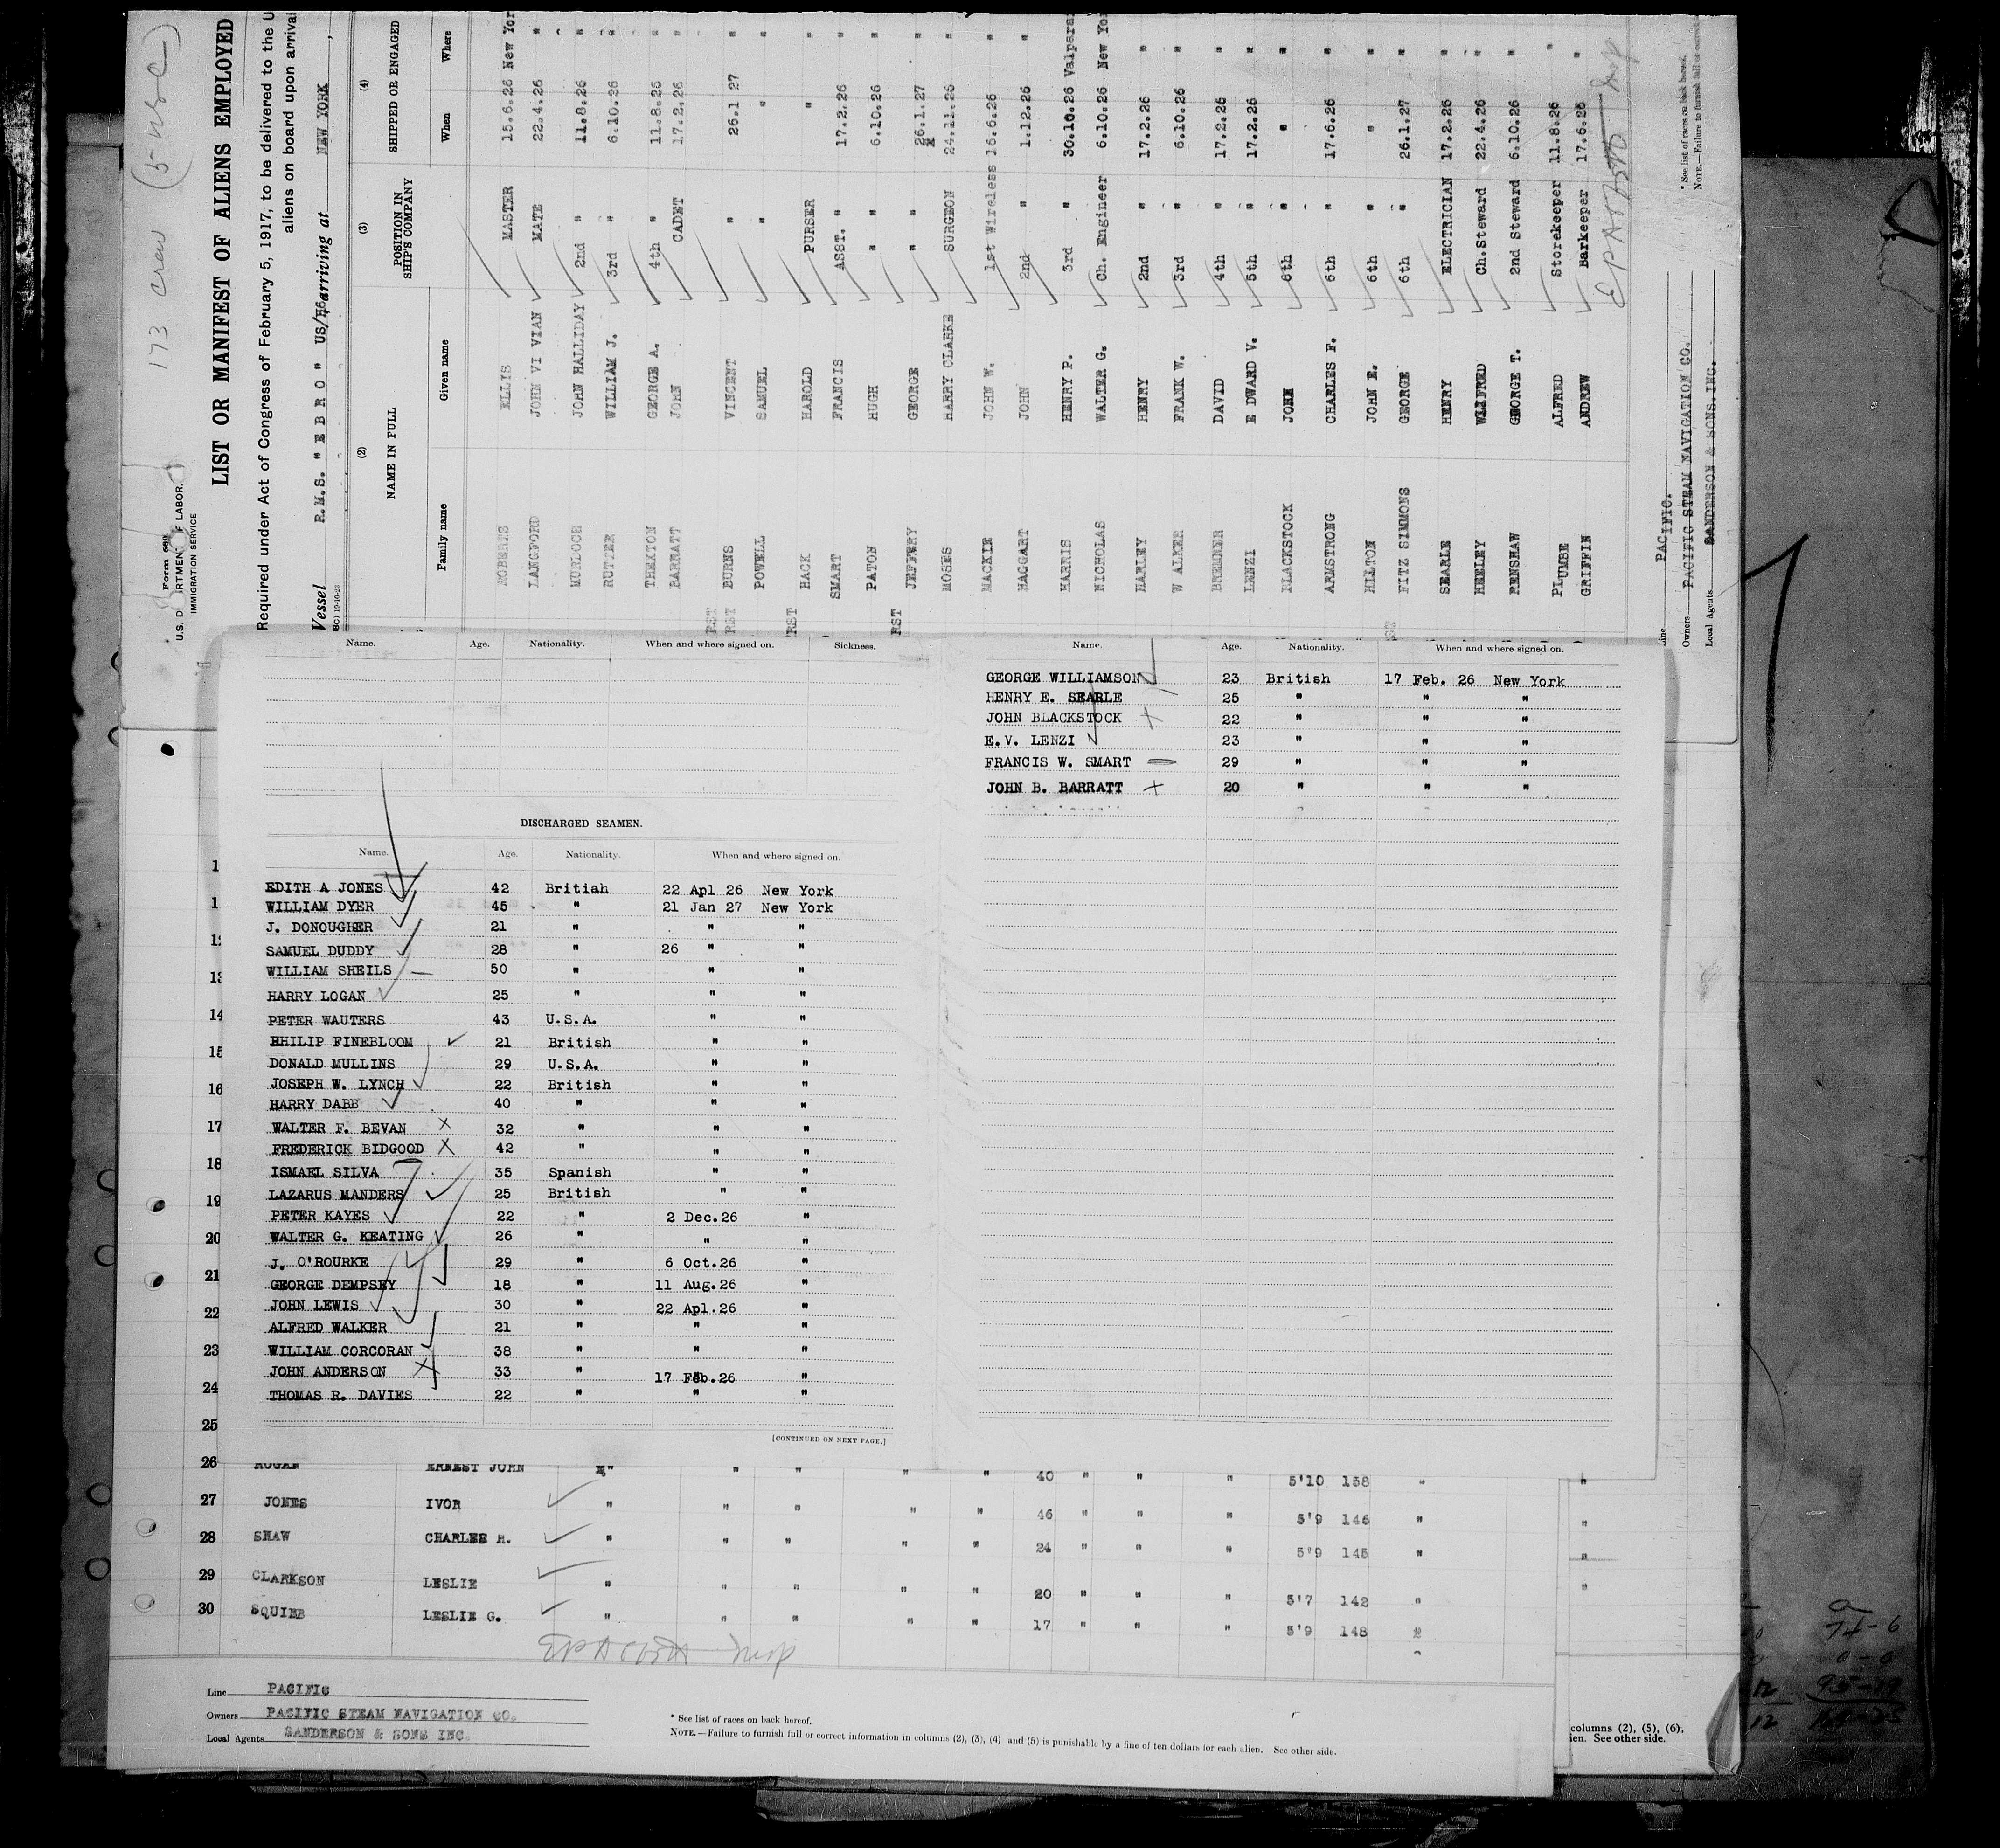 173 crew
Form 689
U.S. D RTMENT OF LABOR.
IMMIGRATION SERVICE
LIST OR MANIFEST OF ALIENS EMPLOYED
Required under Act of Congress of February 5, 1917, to be delivered to the U
aliens on board upon arrival
Vessel R.M.S. "EBRO" arriving at NEW YORK ,
(2) (3) (4)
NAME IN FULL POSITION IN SHIP'S COMPANY SHIPPED OR ENGAGED
Family name Given name When Where
ROBERTS ELLIS MASTER 15.6.26 New Yor
LANGFORD JOHN VI VIAN MATE 22.4.26 "
MURDOCH JOHN HALLIDAY 2nd " 11.8.26 "
RUTTER WILLIAM J. 3rd " 6.10.26 "
THEATON GEORGE A. 4th " 11.8.26 "
BARRATT JOHN CADET 17.2.26 "
RST BURNS VINCENT " 26.1 27 "
POWELL SAMUEL " " "
RST HACK HAROLD PURSER " "
SMART FRANCIS ASST. " 17.2.26 "
PATON HUGH " 6.10.26 "
RST JEFFERY GEORGE " 26.1.27 "
MOSES HARRY CLARKE SURGEON 24.11.26 "
MACKIE JOHN W. 1st Wireless 16.6.26 "
HAGGART JOHN 2nd " 1.12.26 "
HARRIS HENRY P. 3rd " 30.10.26 Valpara
NICHOLAS WALTER G. Ch. Engineer 6.10.26 New Yo
HARLEY HENRY 2nd " 17.2.26 "
W ALKER FRANK W. 3rd " 6.10.26 "
BREMNER DAVID 4th " 17.2.26 "
LENZI E DWARD V. 5th " 17.2.26 "
BLACKSTOCK JOHN 6th " " "
ARMSTRONG CHARLES F. 6th " 17.6.26 "
HILTON JOHN E. 6th " " "
FITZ SIMMONS GEORGE 6th " 26.1.27 "
SEARLE HENRY ELECTRICIAN 17.2.26 "
HEELEY WLIFRED Ch.Steward 22.4.26 "
RENSHAW GEORGE T. 2nd Steward 6.10.26 "
PLUMBE ALFRED Storekeeper 11.8.26 "
GRIFFIN ANDREW Barkeeper 17.6.26 "
Line PACIFIC.
Owners PACIFIC STEAM NAVIGATION CO.
Local Agents SANDERSON & SONS. INC.
* See list of races on back hereof.
NOTE.—Failure to furnish full or correct
Name. Age. Nationality. When and where signed on. Sickness.
DISCHARGED SEAMEN.
Name. Age. Nationality. When and where signed on.
EDITH A JONES 42 Britiah 22 Apl 26 New York
WILLIAM DYER 45 " 21 Jan 27 New York
J. DONOUGHER 21 " " "
SAMUEL DUDDY 28 " 26 " "
WILLIAM SHEILS 50 " " "
HARRY LOGAN 25 " " "
PETER WAUTERS 43 U.S.A. " "
PHILIP FINEBLOOM 21 British " "
DONALD MULLINS 29 U.S.A. " "
JOSEPH W. LYNCH 22 British " "
HARRY DABB 40 " " "
WALTER F. BEVAN 32 " " "
FREDERICK BIDGOOD 42 " " "
ISMAEL SILVA 35 Spanish " "
LAZARUS MANDERS 25 British " "
PETER KAYES 22 " 2 Dec.26 "
WALTER G. KEATING 26 " " "
J. O'ROURKE 29 " 6 Oct.26 "
GEORGE DEMPSEY 18 " 11 Aug.26 "
JOHN LEWIS 30 " 22 Apl.26 "
ALFRED WALKER 21 " " "
WILLIAM CORCORAN 38 " " "
JOHN ANDERSON 33 " 17 Feb.26 "
THOMAS R. DAVIES 22 " " "
[CONTINUED ON NEXT PAGE.]
Name. Age. Nationality. When and where signed on.
GEORGE WILLIAMSON 23 British 17 Feb. 26 New York
HENRY E. SEARLE 25 " " "
JOHN BLACKSTOCK 22 " " "
E.V. LENZI 23 " " "
FRANCIS W. SMART 29 " " "
JOHN B. BARRATT 20 " " "
1
1
12
13
14
15
16
17
18
19
20
21
22
23
24
25
26 HOGAN ERNEST JOHN " " " " " 40 " " " 5'10 158 " "
27 JONES IVOR " " " " " 46 " " " 5'9 146 " "
28 SHAW CHARLES H. " " " " " 24 " " " 5'9 145 " "
29 CLARKSON LESLIE " " " " " 20 " " " 5'7 142 " "
30 SQUIBB LESLIE G. " " " " " 17 " " " 5'9 148 "
Line PACIFIC
Owners PACIFIC STEAM NAVIGATION CO.
Local Agents SANDERSON & SONS INC.
* See list of races on back hereof.
NOTE.—Failure to furnish full or correct information in columns (2), (3), (4) and (5) is punishable by a fine of ten dollars for each alien. See other side.
columns (2), (5), (6),
ien. See other side.
74-6
0-0
12
12